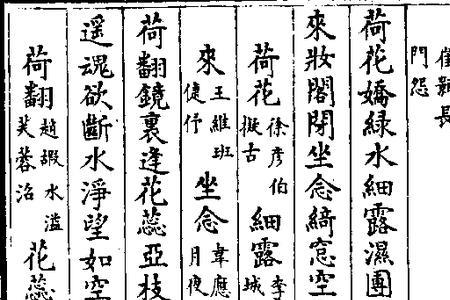 長
門怨
荷花嬌緑水細露濕團
來妝閣閉坐念綺窓空
荷花徐彦伯擬古細露李城
來王維班倢伃坐念韋應月夜
荷翻鏡裏逢花蕊亞枝
遥魂欲斷水淨望如空
荷翻趙嘏水溢芙蓉沼花蕊